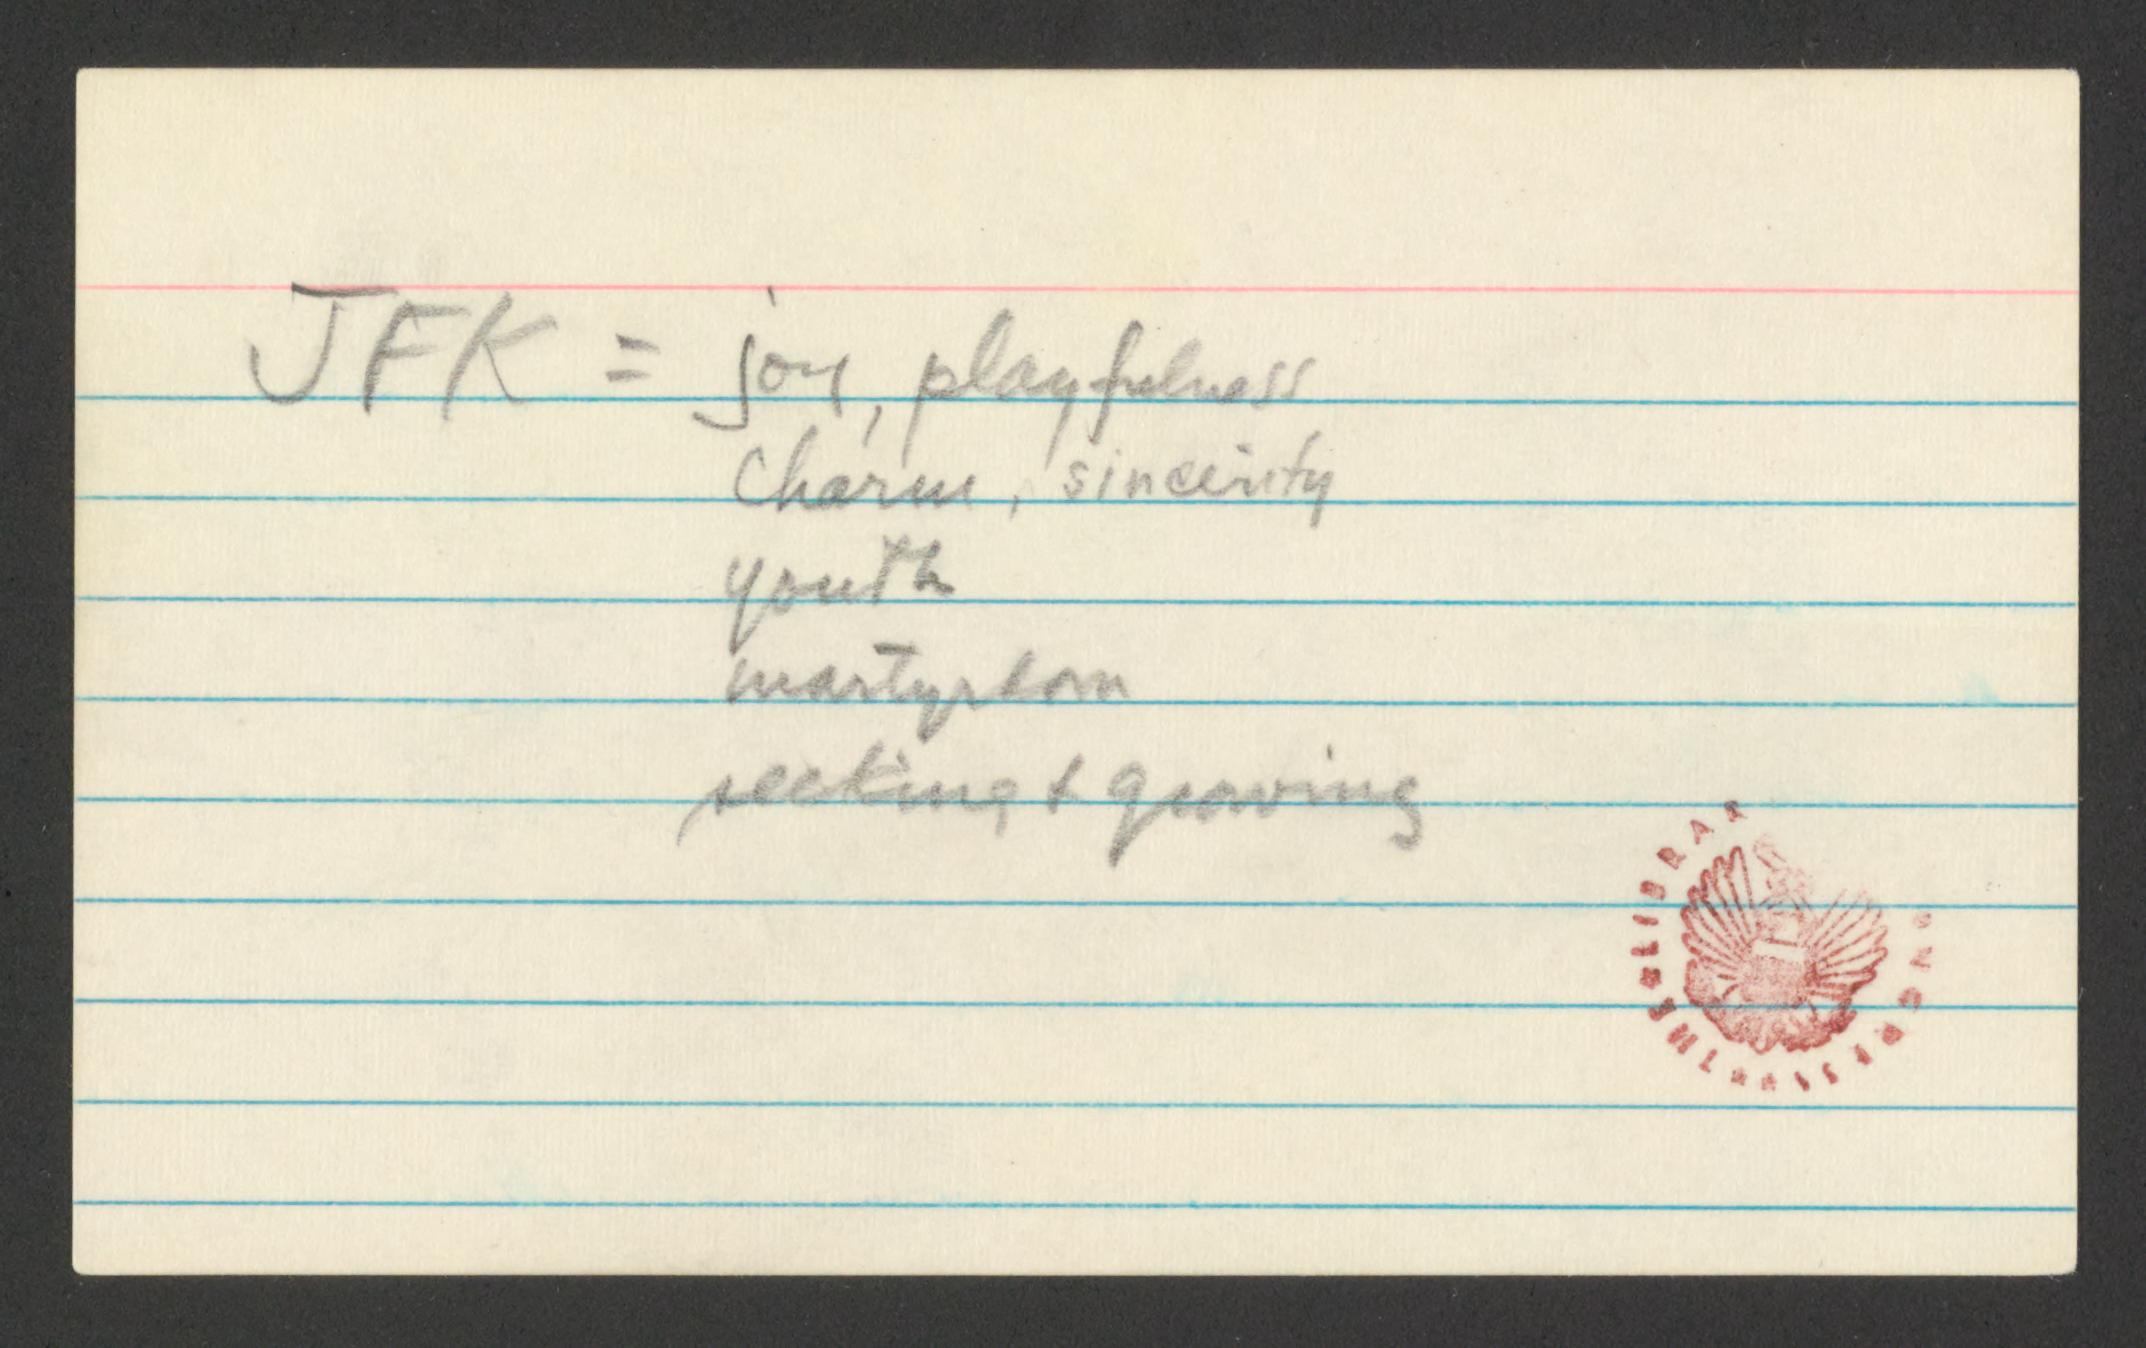 JFK = joy, playfulness
Charm, sincerity
youth
martyrdom
seeking + growing
THE LIBRARY CONGRESS